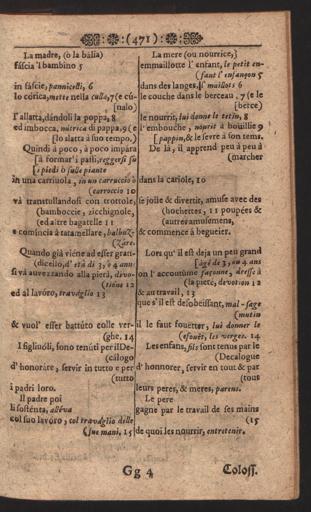 (471)
La madre, (ò la balia)
fáscia 'l bambino 5
in fáscie, pannicelli, 6
lo córica, mette nella culla, 7 (e cú-
[nalo)
l'allatta, dándoli la poppa, 8
ed imbocca, nútrica di pappa, 9 (e
[lo alatta à suo tempo.)
Quindi à poco, à poco impára
[à formar' i passi, reggersi su
[i piedi ò sulle piante
in una carriuola, in un carruccio ò
(carroccio 10
và transtullandosi con trottole,
(bamboccie, zicchignole,
(ed altre bagatelle 11
e comíncia à taramellare, balbuz-
(záre.
Quando già viéne ad esser grati-
(dicello, d'età di 3, ò 4 anni
si và auvezzando alla pietà, devo-
(tióne 12
ed al lavóro, travaglio 13
& vuol' esser battúto colle ver-
(ghe. 14
I figliuóli, sono tenúti per il De-
(cálogo
d' honoráre, servir in tutto e per
(tutto
i padri loro.
Il padre poi
li sosténta, alléva
col suo lavóro, col travaglio delle
(sue mani, 15
La mere (ou nourrice,)
emmaillotte l'enfant, le petit en-
(fant l'enfançon 5
dans des langes, l' maillots 6
le couche dans le berceau, 7 (e le
[berce)
le nourrit, lui donne le tetin, 8
l' embouche, nourit à bouillie 9
[pappin, & le serre à son tems.
De là, il apprend peu à peu à
(marcher
dans la cariole, 10
se jolie & divertit, amuse avec des
(hochettes, 11 poupées &
(autres amusdemens,
& commence à beguéier.
Lors qu'il est deja un peu grand
[âgé de 3, ou 4 ans
on l' accoutúme façonne, dresse à
(la pieté, devotion 12
& au travail, 13
que s'il est desobeïssant, mal-sage
(mutin
il le faut fouetter, lui donner le
(fouët, les verges. 14
Les enfans, fils sont tenus par le
(Decalogue
d' honnorer, servir en tout & par
(tous
leurs peres, & meres, parens.
Le pere
gagne par le travail de ses mains
(15
de quoi les nourrir, entretenir.
Gg 4 Coloss.